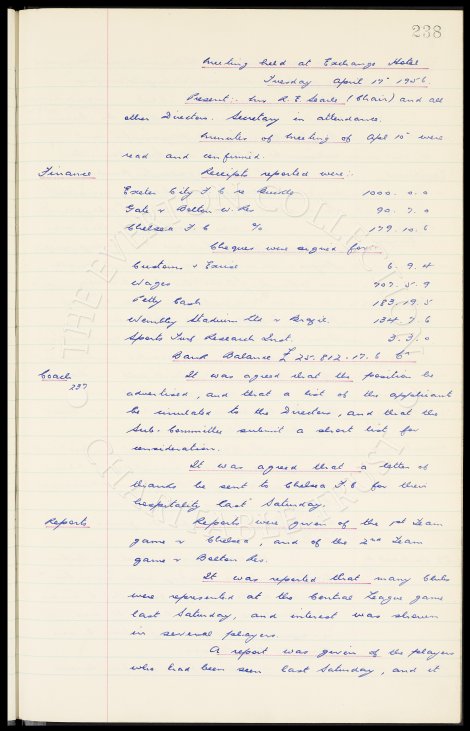 238
Meeting held at Exchange Hotel
Tuesday April 17th 1956.
Present:- Mr. R. E. Searle (Chair) and all
other Directors. Secretary in attendance.
Minutes of meeting of Apl 10th were
read and confirmed.
Finance. Receipts reported were:-
Exeter City F C re Buckle 1000. 0. 0
Gate v Bolton W. Res 90. 7. 0
Chelsea F C % 179. 10. 6
Cheques were signed for:-
Customs & Excise 6. 9. 4
Wages 707. 5. 9
Petty Cash 183. 19. 5
Wembley Stadium Ltd v Brazil 134. 7. 6
Sports Turf Research Inst. 3. 3. 0
Bank Balance £25.812.17.6 Cr
Coach 237 It was agreed that the position be
advertised, and that a list of the applicants
be circulated to the Directors, and that the
Sub-Committee submit a short list for
consideration.
It was agreed that a letter of
thanks be sent to Chelsea F.C. for their
hospitality last Saturday.
Reports Reports were given of the 1st Team
game v Chelsea, and of the 2nd Team
game v Bolton Res.
It was reported that many Clubs
were represented at the Central League game
last Saturday, and interest was shewn
in several players
A report was given of the players
who had been seen last Saturday, and it
THE EVERTON COLLECTION
CHARITABLE TRUST